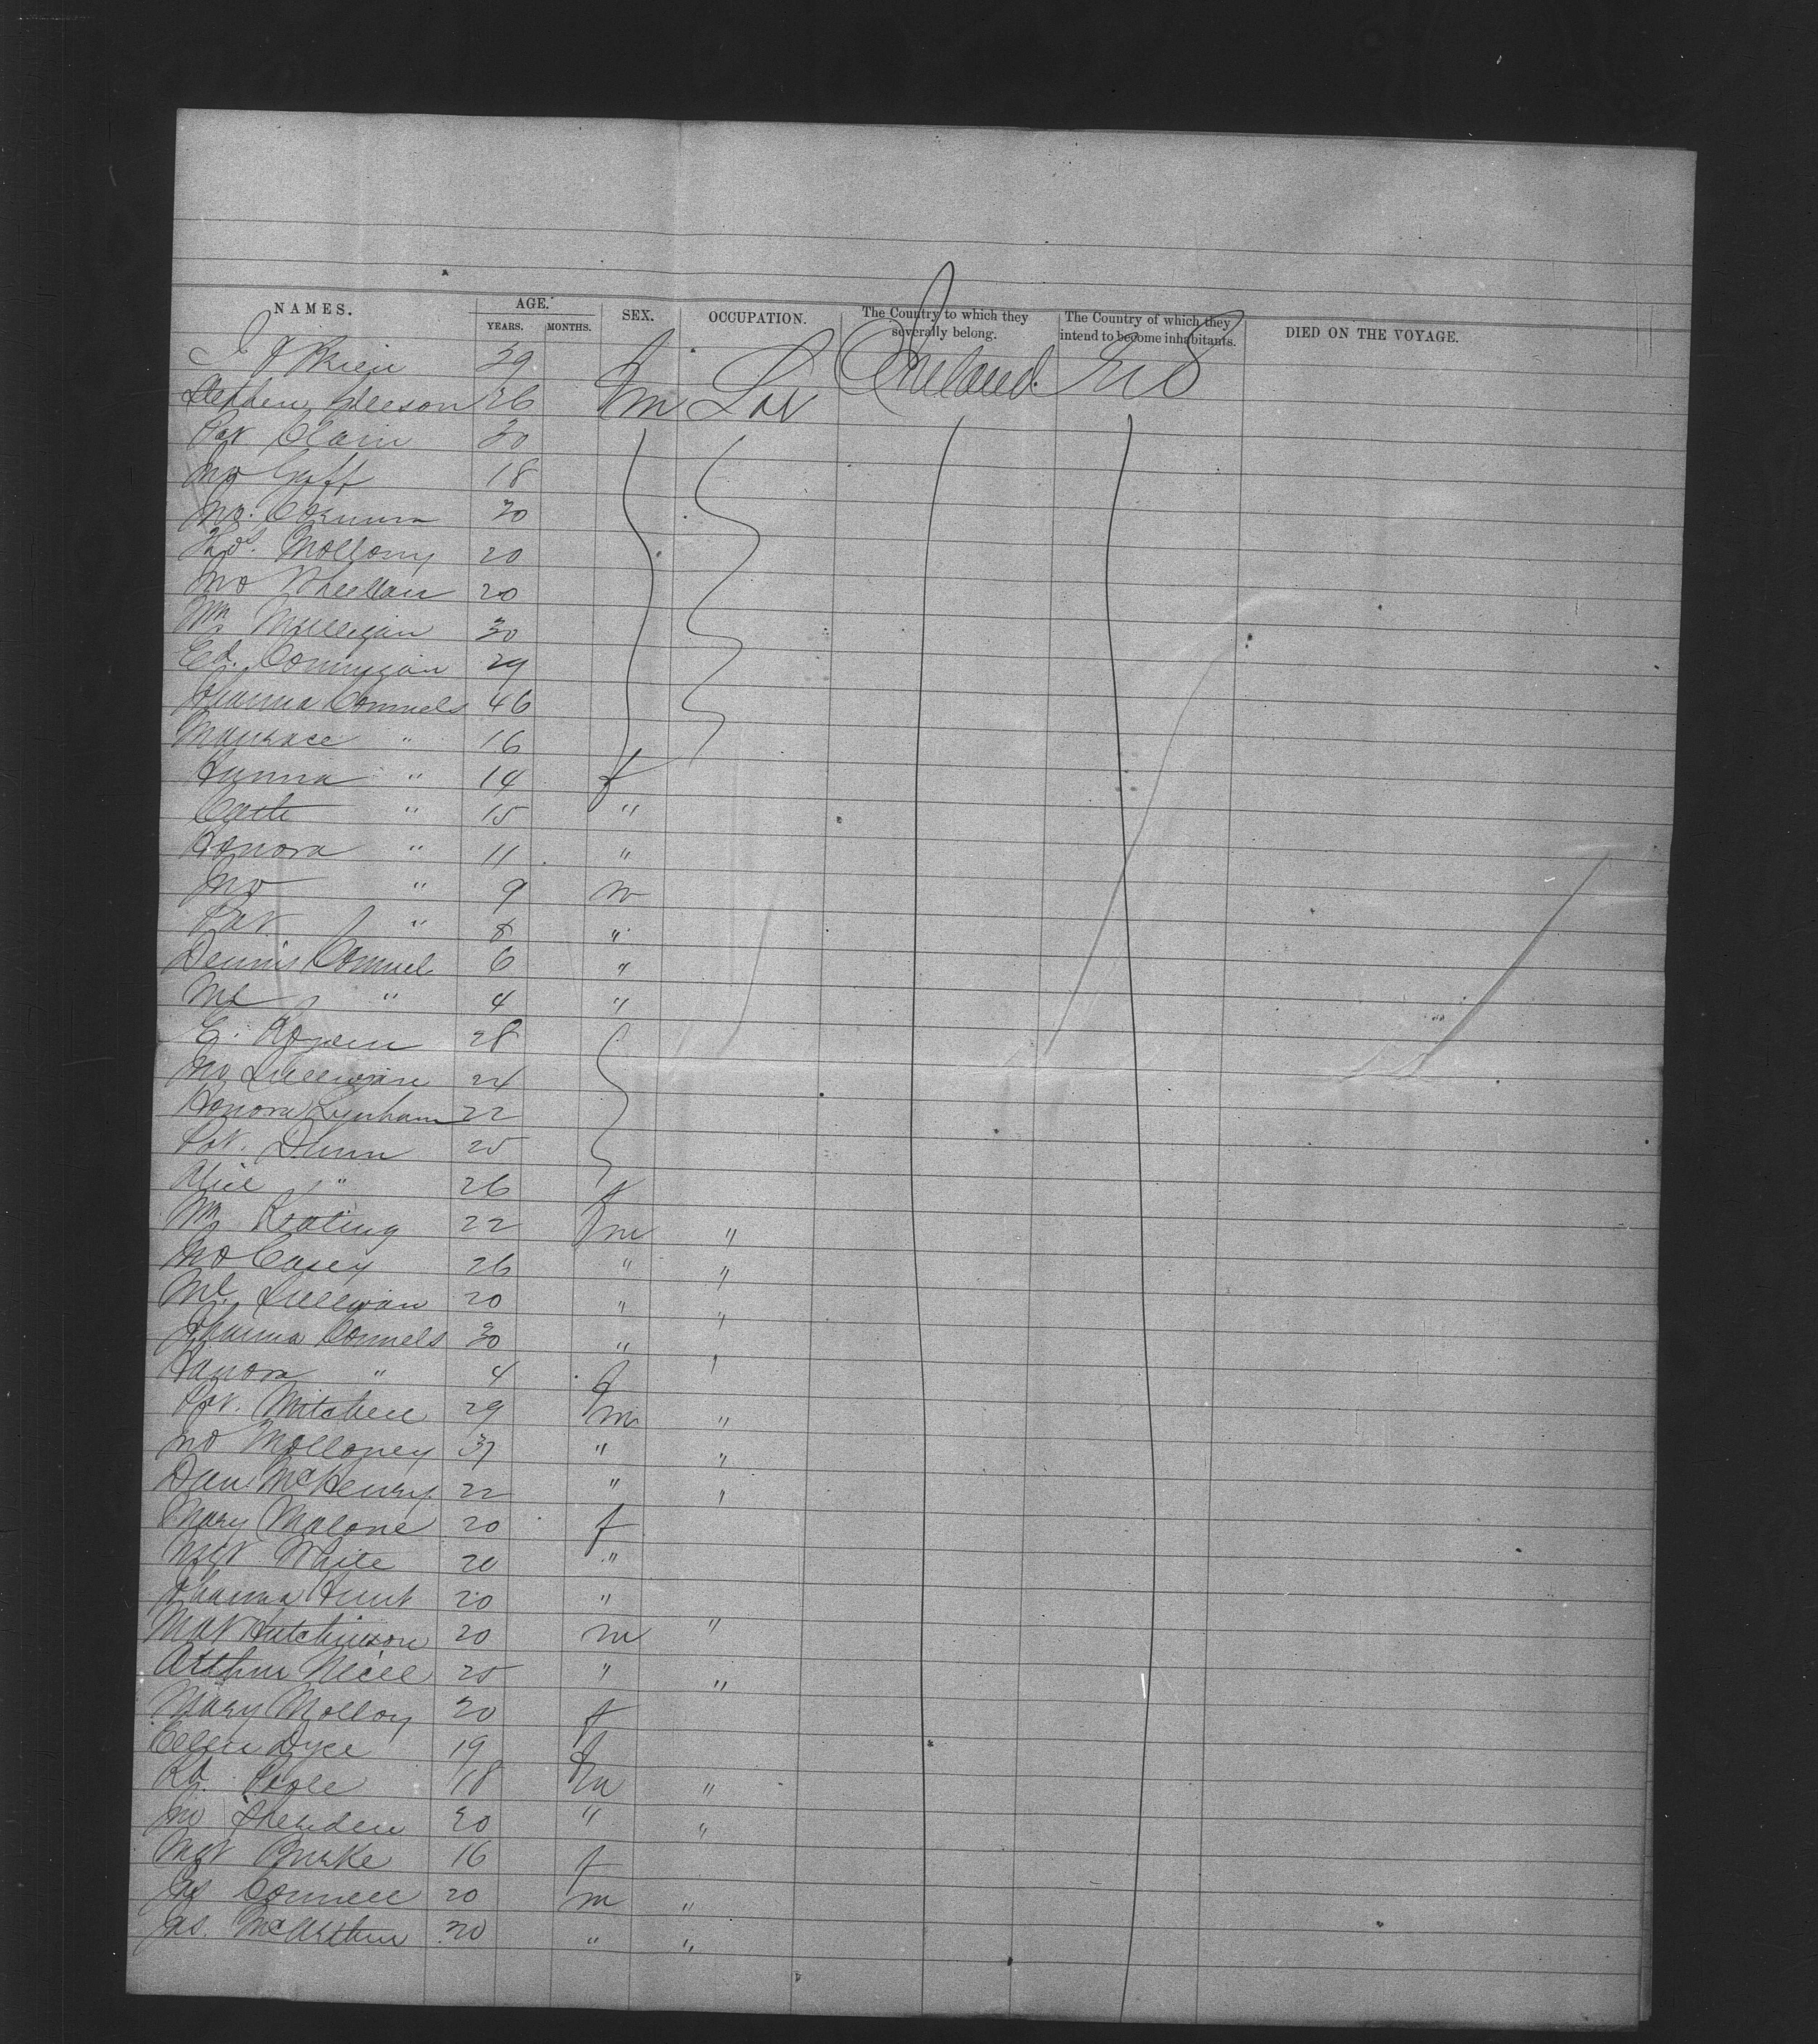 NAMES. AGE. SEX. OCCUPATION. The Country to which they severally belong. The Country of which they intend to become inhabitants. DIED ON THE VOYAGE.
YEARS. MONTHS.
J O'Brien 29
Stephen Gleeson 26 m Lab Ireland US
Pat Clain 30
Jno Goff 18
Jno. 30
Thos. Mollony 20
Jno Wheelan 20
Wm Mulligan 30
Ed. 29
Johanna Connels 46
" 16
Hanna " 14 f
Cath " 15 "
Honora " 11 "
Jno " 9 m
Pat. " 8 "
Dennis Connel 6 "
Ml " 4 "
E. 28
Jno Sullivan 24
Honora Lynham 22
Pat. Dunn 25
Alice " 26 f
Wm Keating 22 m "
Jno Casey 26 " "
Ml. Sullivan 20 " "
Johanna Connels 30 " "
Hanora " 4 f
Pat. Mitchell 29 m "
Jno Molloney 37 " "
Dan. McHenry 22 " "
Mary Malone 20 f
Mgt White 20 "
Johanna Hunt 20 "
Mat Hutchinson 20 m "
Arthur Neill 25 " "
Mary Molloy 20 f
Ellen Dyce 19 f
Rd. Poole 18 m "
Jno Sheriden 20 " "
Mgt Burke 16 f
Jas Connell 20 m "
Jas. McArthur 20 " "